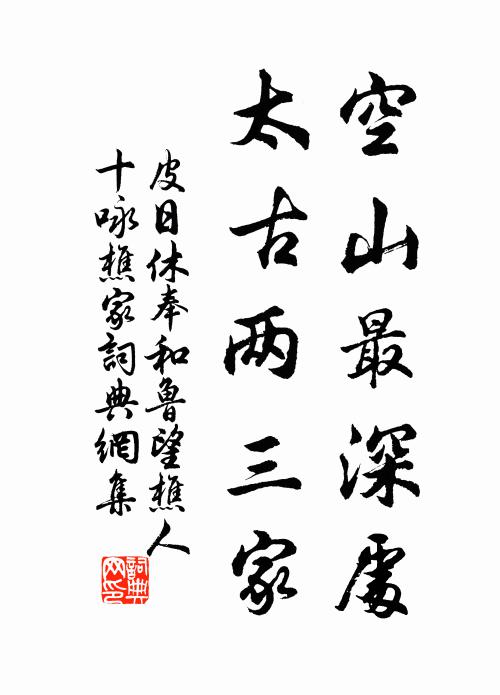 空山最深處
太古两三家
皮日休奉和魯望樵人
十咏樵家詞典網集
詞典
网印